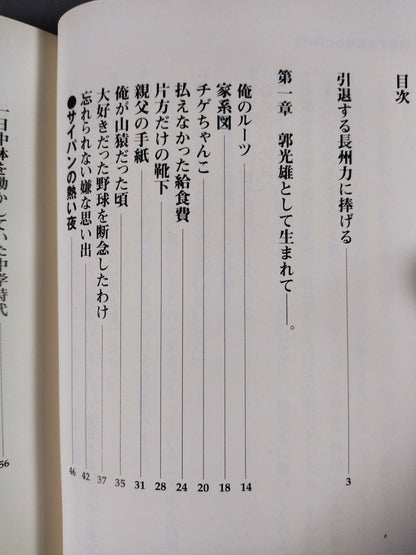 目次
引退する長州力に捧げる――3
第一章　郭光雄として生まれて――。
俺のルーツ――14
家系図――18
チゲちゃんこ――20
払えなかった給食費――24
片方だけの靴下――28
親父の手紙――31
俺が山猿だった頃――35
大好きだった野球を断念したわけ――37
忘れられない嫌な思い出――42
●サイパンの熱い夜――46
一日中体を動かしていた中学時代――56